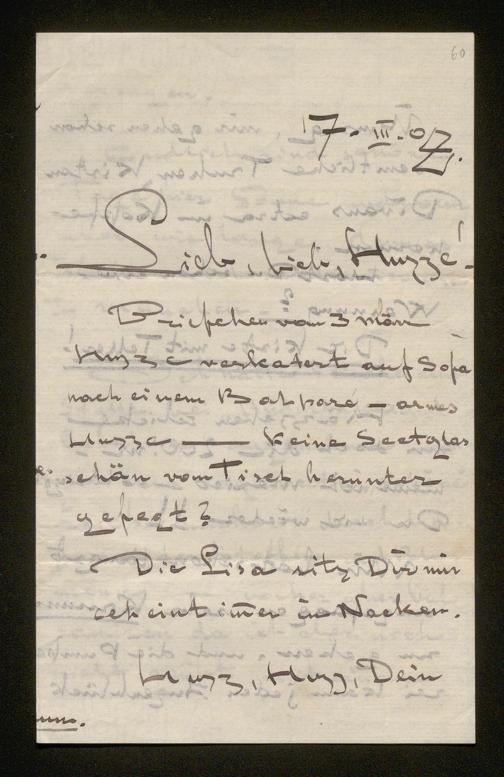 60
17. III. 07.
Lieb, lieb, Huzzé!
Briefchen vom 3 März
Huzzé verkatert auf Sofa
nach einem Bal paré – armes
Huzze —— keine Sectglas
schän vom Tisch herunter
gefegt?
Die Lisa sitz Dir mir
scheint im̄er im Nacken.
Huzz, Huzz, Dein